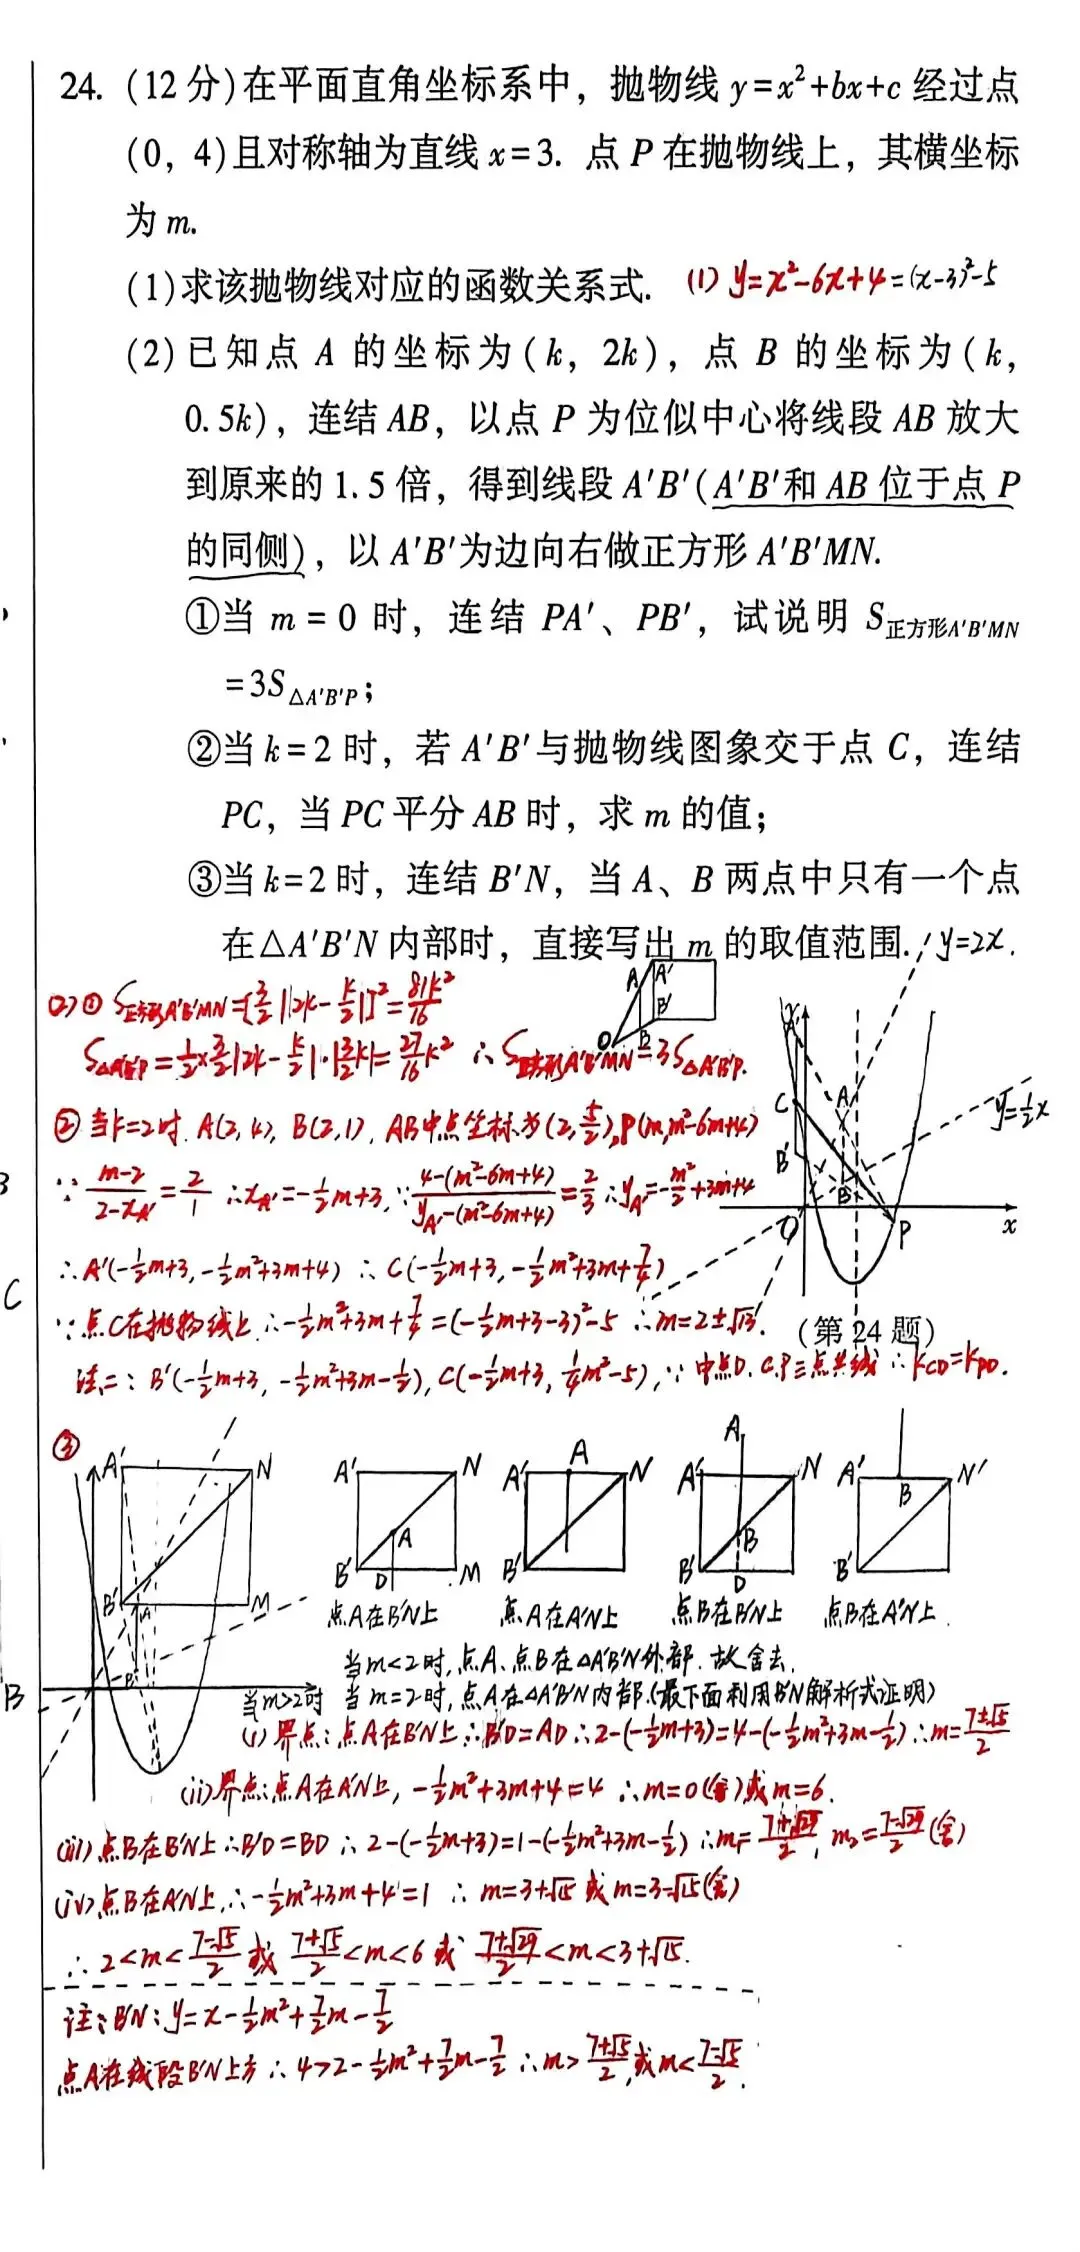 24. (12分)在平面直角坐标系中，抛物线 y=x²+bx+c 经过点
(0，4)且对称轴为直线 x=3. 点 P 在抛物线上，其横坐标
为 m.
(1)求该抛物线对应的函数关系式. (1) y=x²-6x+4=(x-3)²-5
(2)已知点 A 的坐标为(k，2k)，点 B 的坐标为(k，
0.5k)，连结 AB，以点 P 为位似中心将线段 AB 放大
到原来的 1.5 倍，得到线段 A′B′(A′B′和 AB 位于点 P
的同侧)，以 A′B′为边向右做正方形 A′B′MN.
①当 m=0 时，连结 PA′、PB′，试说明 S正方形A′B′MN
=3S△A′B′P；
②当 k=2 时，若 A′B′与抛物线图象交于点 C，连结
PC，当 PC 平分 AB 时，求 m 的值；
③当 k=2 时，连结 B′N，当 A、B 两点中只有一个点
在△A′B′N 内部时，直接写出 m 的取值范围.
y=2x.
A A′ B′ B O
(2)① S正方形A′B′MN=[3/2|2k-k/2|]²=81k²/16
S△A′B′P=1/2×3/2|2k-k/2|·|3/2k|=27/16k² ∴S正方形A′B′MN=3S△A′B′P.
②当k=2时. A(2,4), B(2,1), AB中点坐标为(2,5/2), P(m,m²-6m+4)
∵(m-2)/(2-xA′)=2/1 ∴xA′=-1/2m+3, ∵(4-(m²-6m+4))/(yA′-(m²-6m+4))=2/3 ∴yA′=-m²/2+3m+4
∴A′(-1/2m+3, -1/2m²+3m+4) ∴C(-1/2m+3, -1/2m²+3m+7/4)
∵点C在抛物线上∴-1/2m²+3m+7/4=(-1/2m+3-3)²-5 ∴m=2±√13.
法二：B′(-1/2m+3, -1/2m²+3m-1/2), C(-1/2m+3, 1/4m²-5), ∵中点D.C.P三点共线∴kCD=kPD.
A′ C B′ A B O P x y=1/2x
(第24题)
③
A′ N B′ A M B
A′ N A B′ D M
点A在B′N上
A′ A N B′
点A在A′N上
A A′ N B B′ D
点B在B′N上
A′ B N′ B′
点B在A′N上.
当m<2时,点A、点B在△A′B′N外部.故舍去.
当m>2时 当m=2时,点A在△A′B′N内部.(最下面利用B′N解析式证明)
(i)界点:点A在B′N上∴B′D=AD∴2-(-1/2m+3)=4-(-1/2m²+3m-1/2)∴m=(7±√5)/2
(ii)界点:点A在A′N上, -1/2m²+3m+4=4 ∴m=0(舍)或m=6.
(iii)点B在B′N上∴B′D=BD∴2-(-1/2m+3)=1-(-1/2m²+3m-1/2)∴m₁=(7+√29)/2, m₂=(7-√29)/2(舍)
(iv)点B在A′N上,∴-1/2m²+3m+4=1 ∴m=3+√15或m=3-√15(舍)
∴2<m<(7-√5)/2或(7+√5)/2<m<6或(7+√29)/2<m<3+√15.
注:B′N:y=x-1/2m²+7/2m-7/2
点A在线段B′N上方∴4>2-1/2m²+7/2m-7/2∴m>(7+√5)/2,或m<(7-√5)/2.